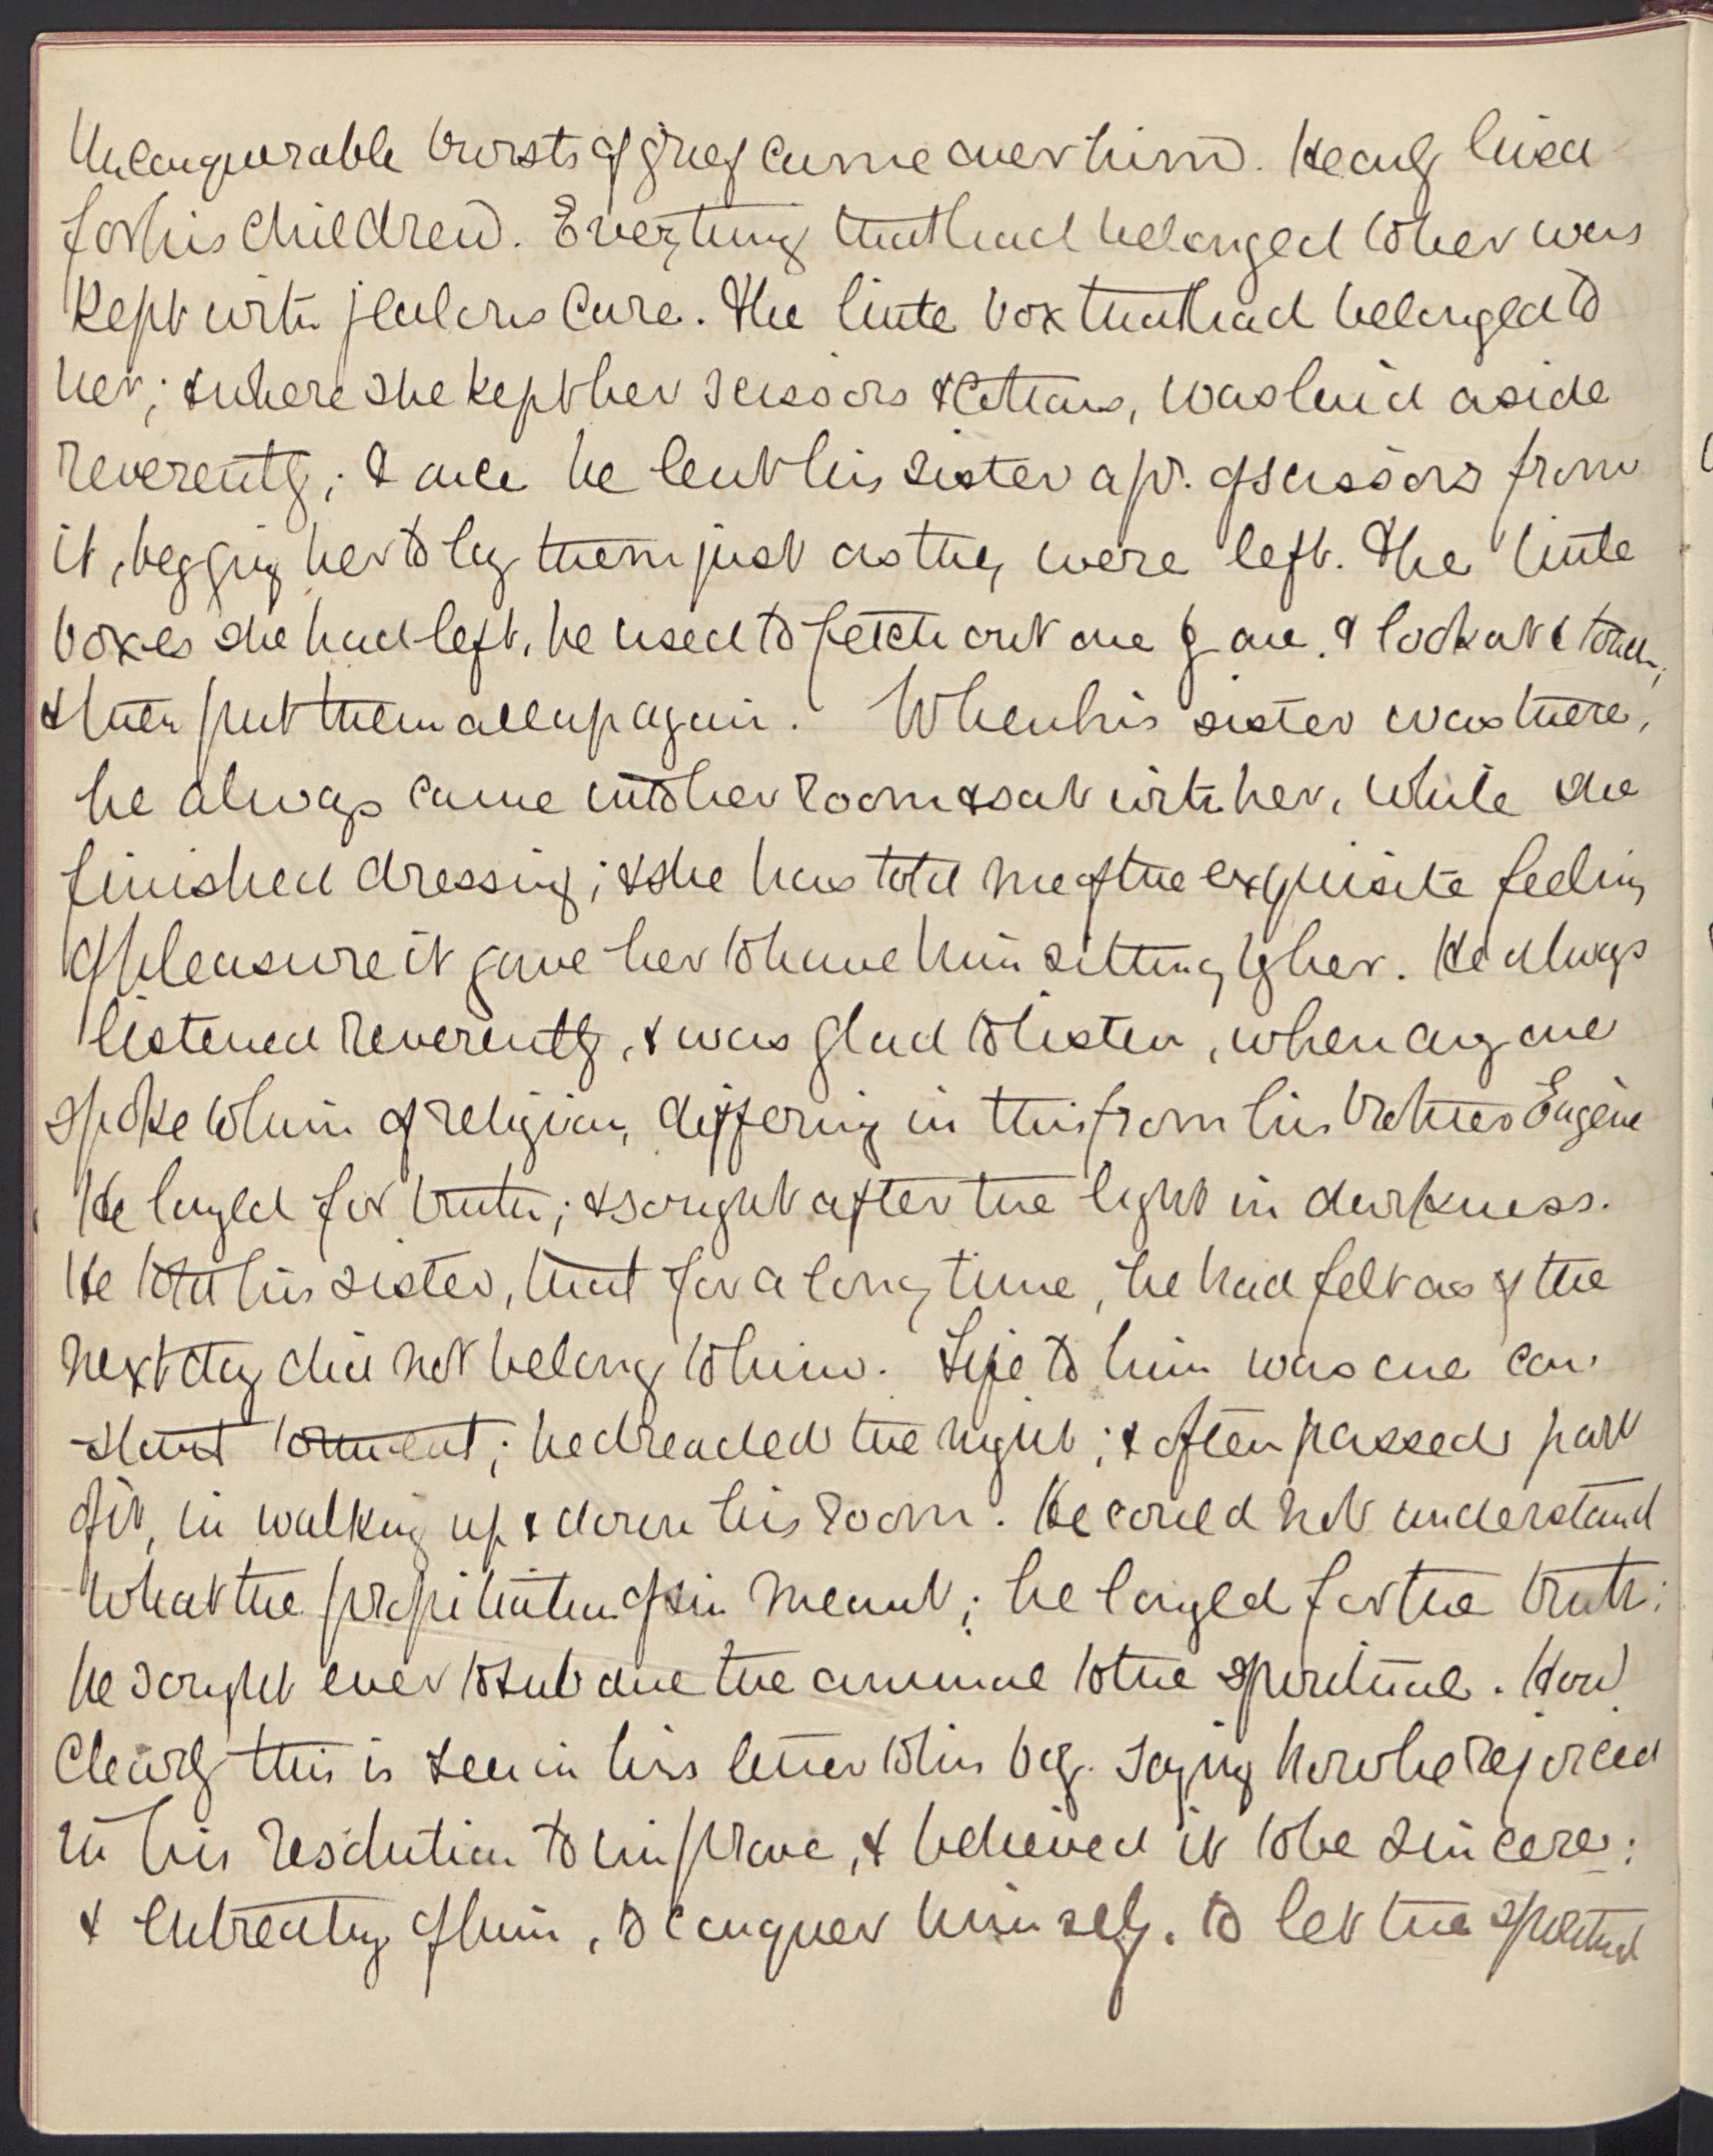 Unconquerable bursts of grief came over him. He only lived
for his children. Everything that had belonged to her was
kept with jealous care. The little box that had belonged to
her; & where she kept her scissors & cottons, was laid aside
reverently; & once he lent his sister a pr. of scissors from
it, begging her to lay them just as they were left. The little
boxes she had left, he used to fetch out one by one, & look at & touch,
& then put them all up again. When his sister was there,
he always came into her room & sat with her, while she
finished dressing; & she has told me of the exquisite feeling
of pleasure it gave her to have him sitting by her. He always
listened reverently, & was glad to listen, when any one
spoke to him of religion, differing in this from his brother Eugène
He longed for truth; & sought after the light in darkness.
He told his sister, that for a long time, he had felt as if the
next day did not belong to him. Life to him was one con-
-stant torment; he dreaded the night; & often passed part
of it, in walking up & down his room. He could not understand
what the propitiation of sin meant; he longed for the truth;
he sought ever to subdue the animal to the spiritual. How
clearly this is seen in his letter to his boy. Saying how he rejoiced
in his resolution to improve, & believed it to be sincere;
& entreating of him, to conquer himself. to let the spiritual